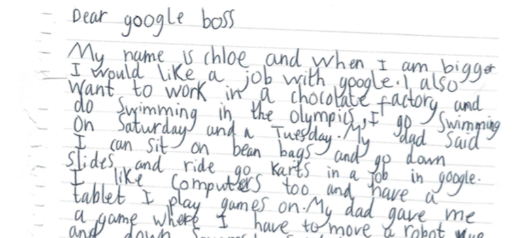 Dear google boss
My name is chloe and when I am bigger
I would like a job with google. I also
want to work in a chocolate factory and
do swimming in the olympics. I go swimming
on Saturday and a Tuesday. My dad said
I can sit on bean bags and go down
slides and ride go karts in a job in google.
I like computers too and have a
tablet I play games on. My dad gave me
a game where I have to move a robot
and down